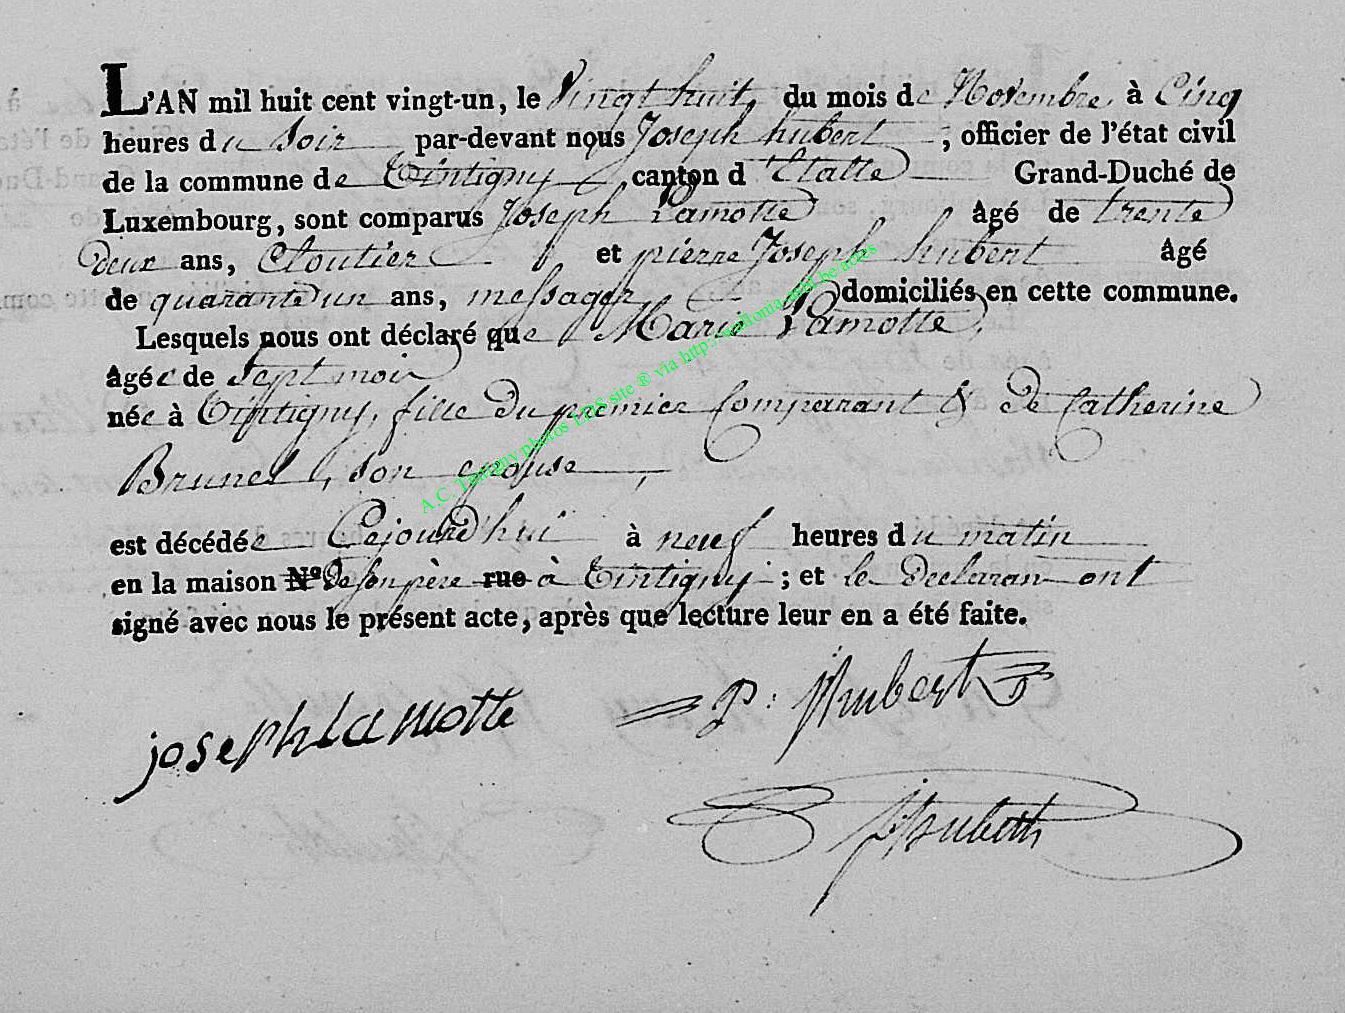 L'AN mil huit cent vingt-un, le Vingt huit, du mois de Novembre, à Cinq
heures du Soir par-devant nous Joseph hubert ; officier de l'état civil
de la commune de Tintigny canton d'Etalle Grand-Duché de
Luxembourg, sont comparus Joseph Lamotte âgé de trente
deux ans, Cloutier et pierre Joseph hubert âgé
de quarante un ans, messager domiciliés en cette commune.
Lesquels nous ont déclaré que Marie Lamotte,
âgée de Sept mois
née à Tintigny, fille du premier Comparant & de Catherine
Brunel, son epouse,
est décédée Cejourd'hui à neuf heures du matin
en la maison N.º de son père rue à Tintigny ; et le Declaran ont
signé avec nous le présent acte, après que lecture leur en a été faite.
joseph lamotte
P: J hubert
J hubert
A.C. Tintigny photos LDS site ® via http://wallonia-asbl.be/actes